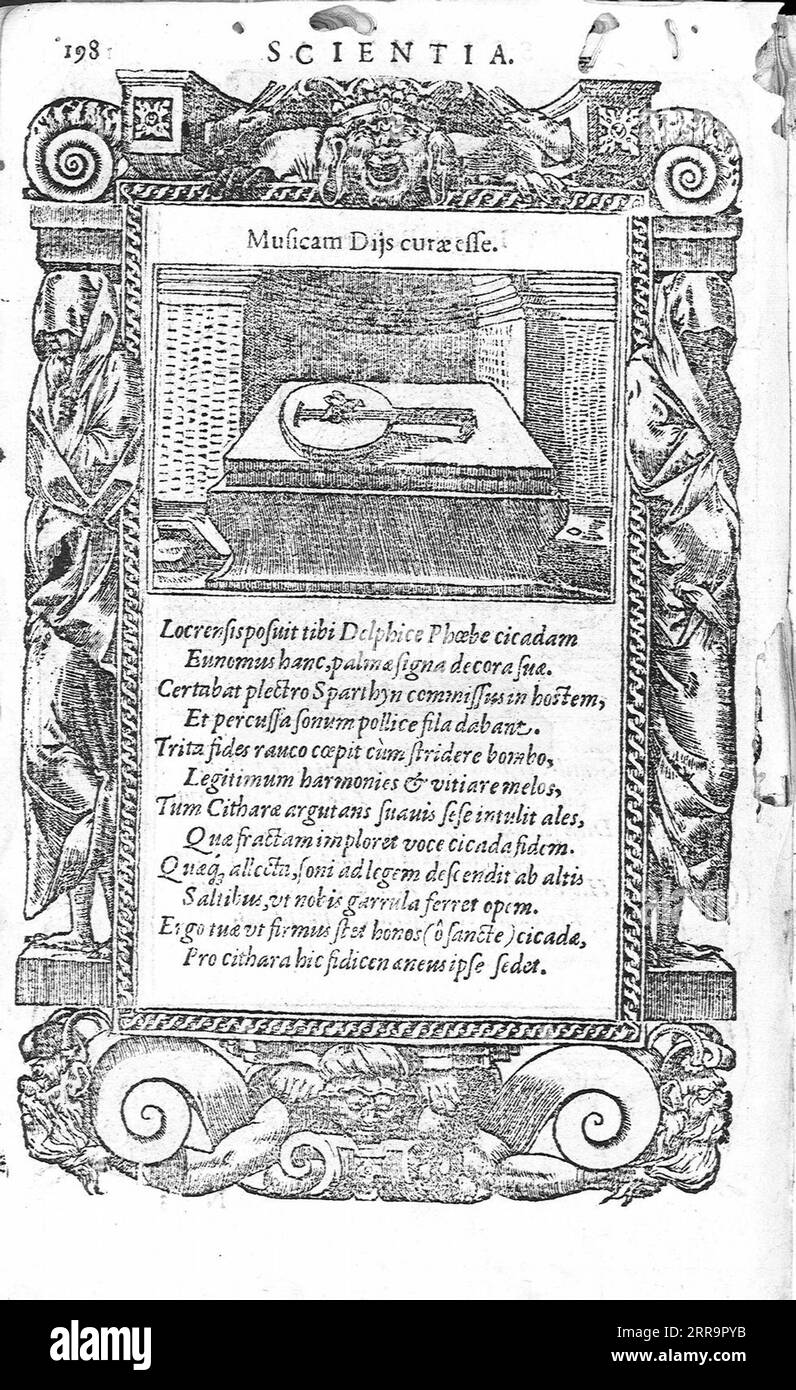 198
SCIENTIA.
Musicam Dijs curæ esse.
Locrensis posuit tibi Delphice Phœbe cicadam
Eunomus hanc, palmæ signa decora suæ.
Certabat plectro Sparthyn commissus in hostem,
Et percussa sonum pollice fila dabant.
Trita fides rauco cœpit cùm stridere bombo,
Legitimum harmonies & vitiare melos,
Tum Citharæ argutans suavis sese intulit ales,
Quæ fractam imploret voce cicada fidem.
Quæq; allecta, soni ad legem descendit ab altis
Saltibus, vt nobis garrula ferret opem.
Ergo tuæ vt firmus stet honos (ô sancte) cicadæ,
Pro cithara hic fidicen aneus ipse sedet.
alamy
alamy
Image ID: 2RR9PYB
www.alamy.com